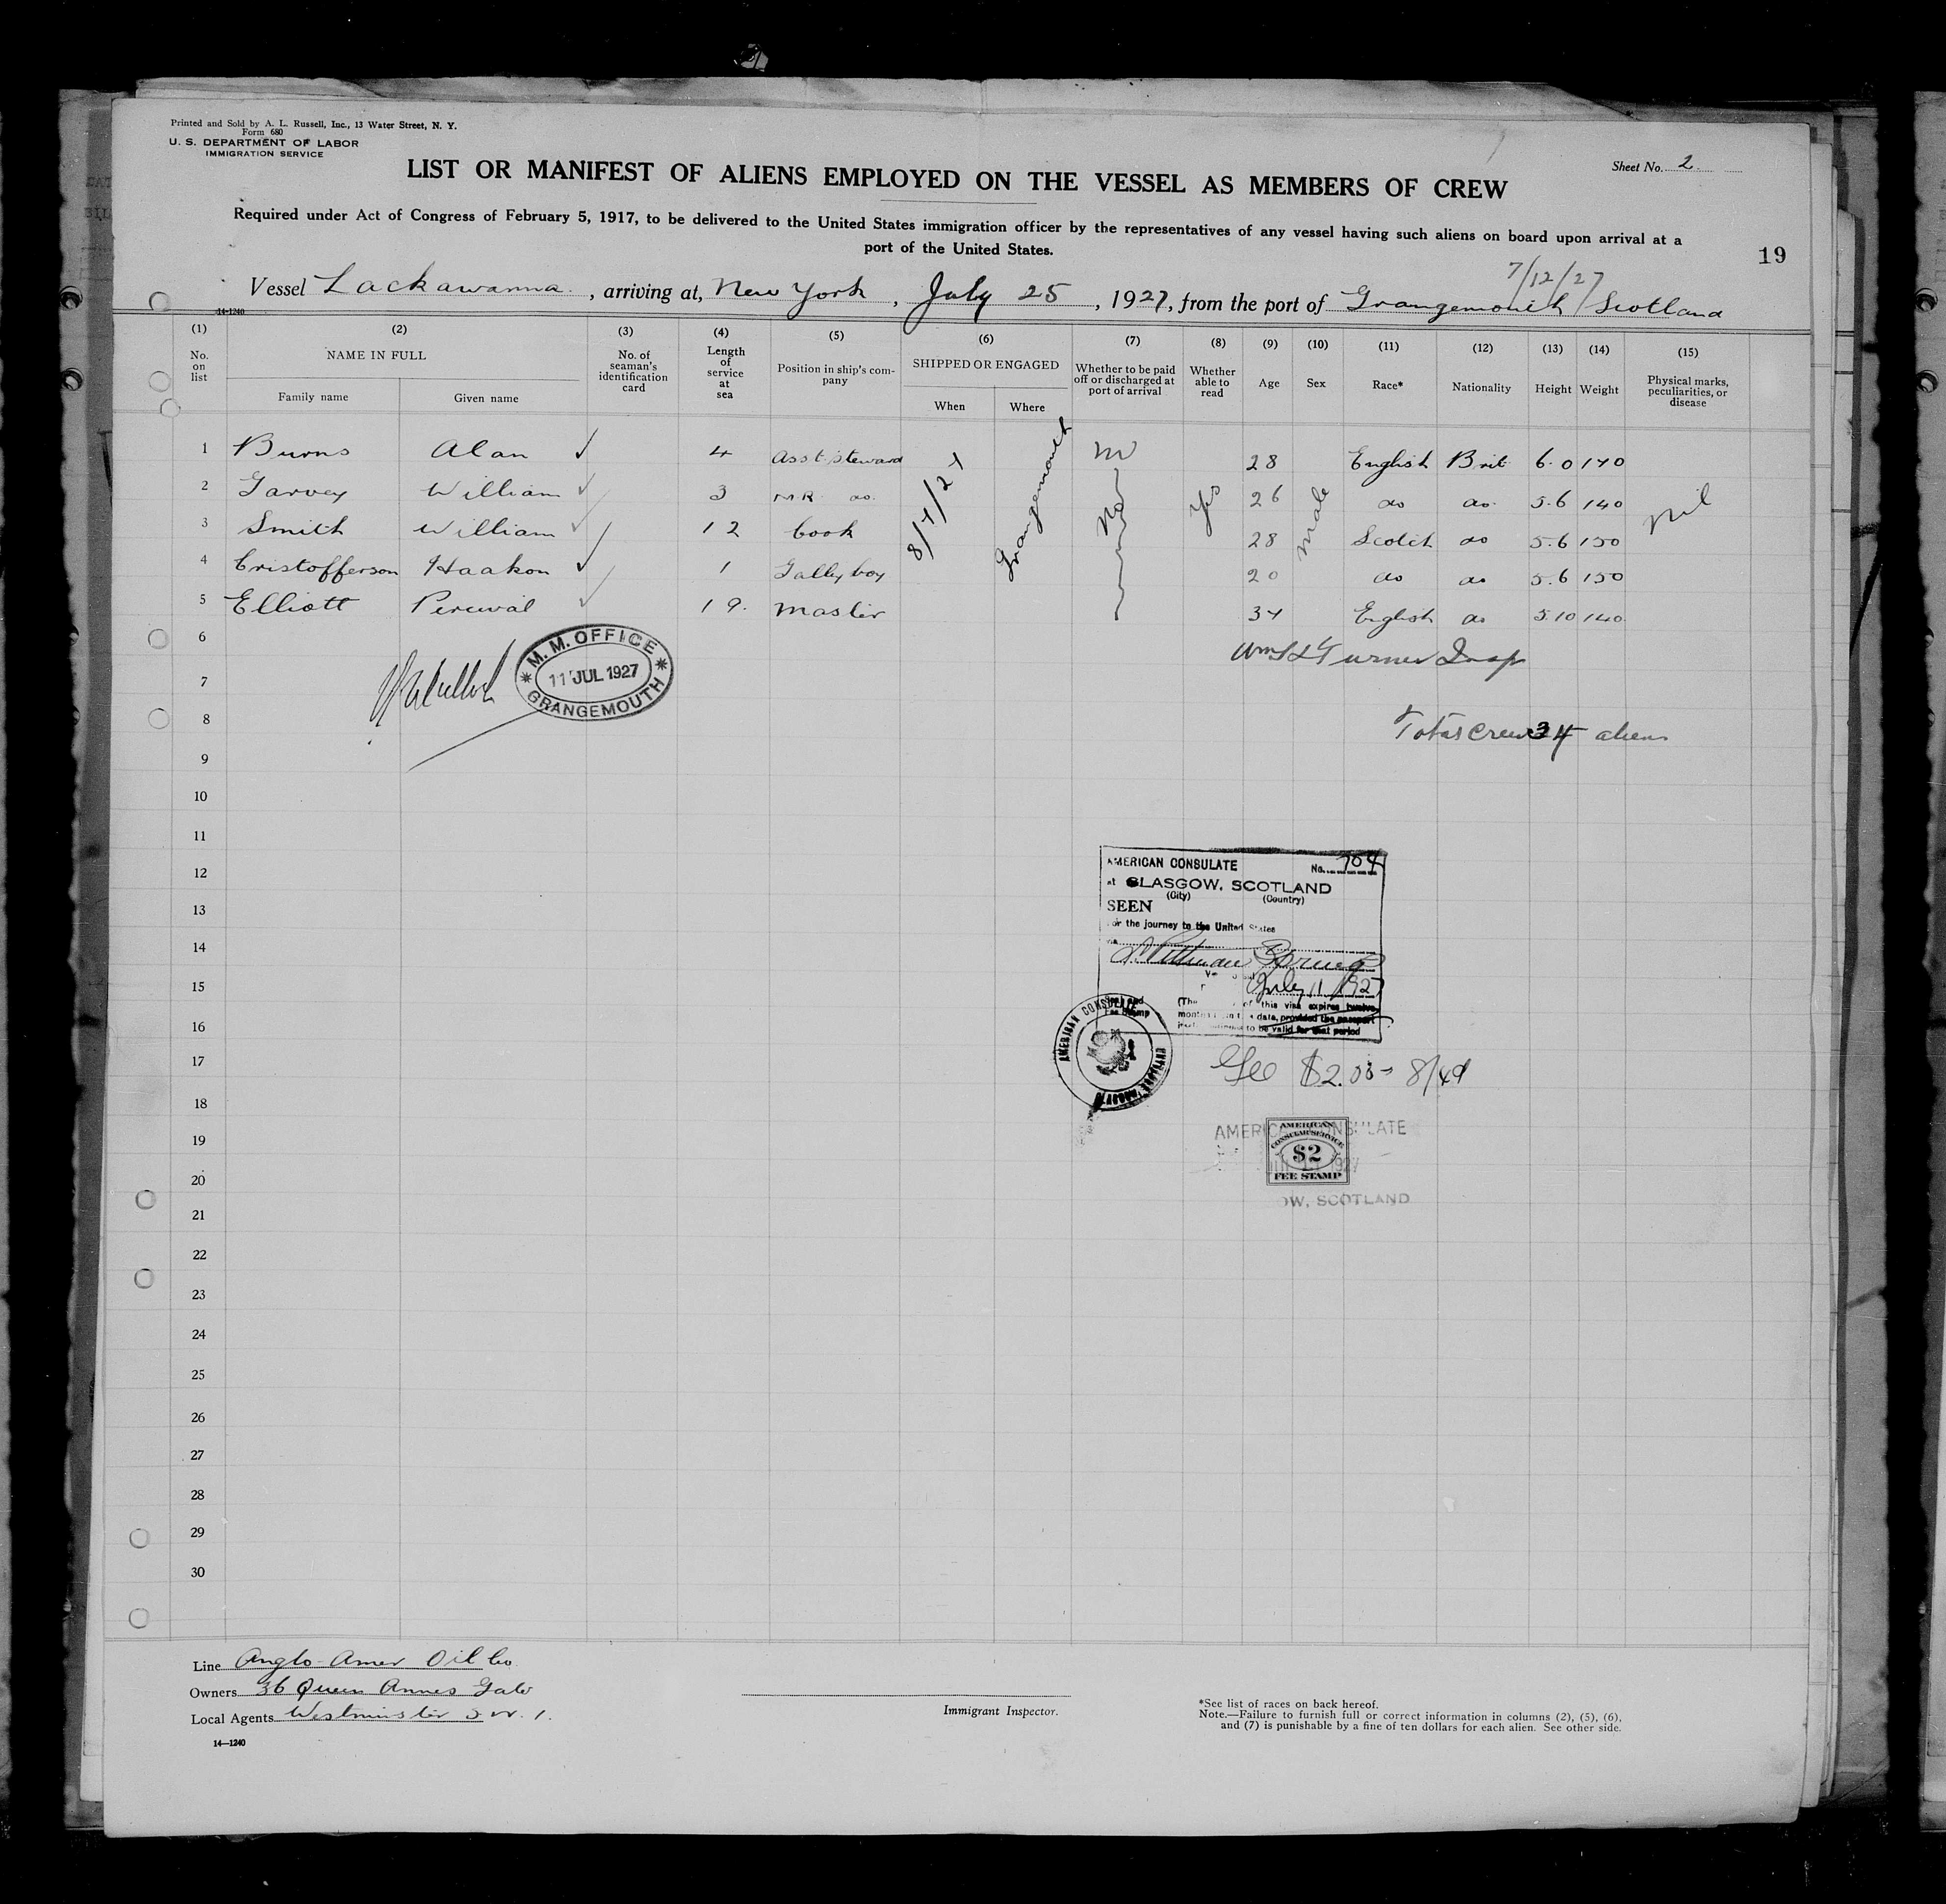 Printed and Sold by A. L. Russell, Inc., 13 Water Street, N. Y.
Form 680
U. S. DEPARTMENT OF LABOR
IMMIGRATION SERVICE
Sheet No. 2
LIST OR MANIFEST OF ALIENS EMPLOYED ON THE VESSEL AS MEMBERS OF CREW
Required under Act of Congress of February 5, 1917, to be delivered to the United States immigration officer by the representatives of any vessel having such aliens on board upon arrival at a
port of the United States.
19
7/12/27
Vessel Lackawanna, arriving at, New York, July 25, 1927, from the port of Grangemouth Scotland
14-1240
(1) (2) (3) (4) (5) (6) (7) (8) (9) (10) (11) (12) (13) (14) (15)
No. on list
NAME IN FULL
Family name
Given name
No. of seaman's identification card
Length of service at sea
Position in ship's company
SHIPPED OR ENGAGED
When
Where
Whether to be paid off or discharged at port of arrival
Whether able to read
Age
Sex
Race*
Nationality
Height
Weight
Physical marks, peculiarities, or disease
1 Burns Alan 4 Asst steward 28 English Brit 6.0 170
2 Garvey William 3 M R do. 26 do do. 5.6 140
3 Smith William 12 Cook 28 Scotch do 5.6 150
4 Cristofferson Haakon 1 Galley boy 20 do do 5.6 150
5 Elliott Percival 19. Master 34 English do 5.10 140
8/7/27
Grangemouth
No
Yes
Male
nil
6
7
8
9
10
11
12
13
14
15
16
17
18
19
20
21
22
23
24
25
26
27
28
29
30
M. M. OFFICE
11 JUL 1927
GRANGEMOUTH
Turner Insp
Total crew 34 aliens
AMERICAN CONSULATE No. 704
at GLASGOW, SCOTLAND
(City) (Country)
SEEN
For the journey to the United States
July 11 1927
of this visa expires twelve
months from this date, provided the passport
to be valid for that period
AMERICAN CONSULATE
Fee $2.00 = 8/4d
AMERICAN CONSULATE
AMERICAN
CONSULAR SERVICE
$2
FEE STAMP
OW, SCOTLAND
Line Anglo-Amer Oil Co.
Owners 36 Queen Annes Gate
Local Agents Westminster S.W. 1.
14—1240
Immigrant Inspector.
*See list of races on back hereof.
Note.—Failure to furnish full or correct information in columns (2), (5), (6),
and (7) is punishable by a fine of ten dollars for each alien. See other side.